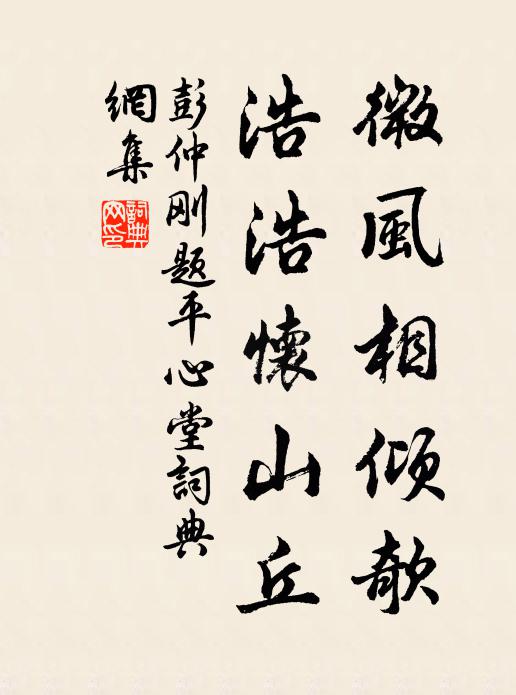 微風相傾欹
浩浩懷山丘
彭仲刚題平心堂詞典
網集
詞典
网印